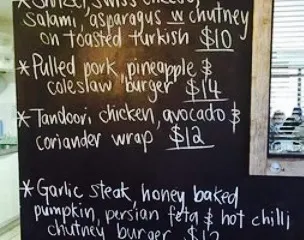 * Swiss cheese,
salami, asparagus w chutney
on toasted turkish $10
* Pulled pork, pineapple &
coleslaw burger $14
* Tandoori chicken, avocado &
coriander wrap $12
* Garlic steak, honey baked
pumpkin, persian feta & hot chilli
chutney burger